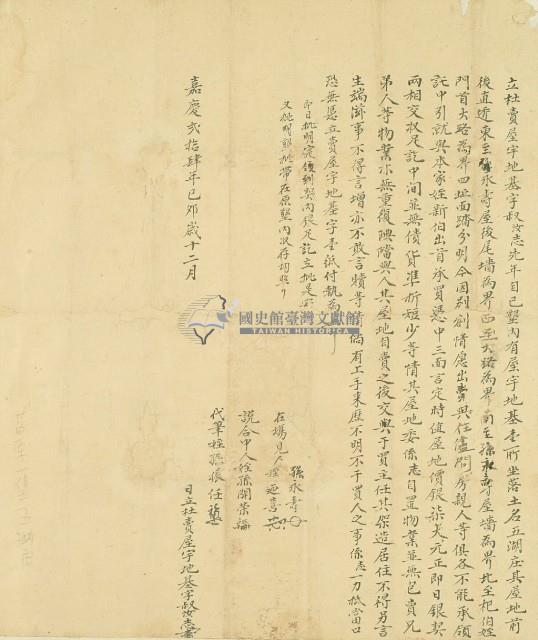 立杜賣屋宇地基字叔汝志先年自己墾內有屋宇地基壹所坐落土名五湖庄其屋地前
後直透東至張承壽屋後尾墻為界西至大路為界南至張承壽屋墻為界北至祀伯姪
門首大路為界四址面踏分明今因别創情愿出賣與任儘問房親人等俱各不能承領
託中引就與本家姪新伯出首承買憑中三面言定時值屋地價銀柒大元正即日銀契
兩相交收足訖中間並無債貨準折短少等情其屋地委係志自置物業並無包賣兄
弟人等物業亦無重復典當與人其屋地自賣之後交與于買主任其架造居住不得另言
生端滋事不得言增亦不敢言贖等 倘有上手来歷不明不干買人之事係志一力抵當口
恐無憑立賣屋宇地基字壹紙付執為
即日批明實領到契內銀足訖立批是
又批明 批帶在原墾內收存切照
在場見人 姪廷喜
張承壽
說合中人姪孫開榮
代筆姪孫振任
嘉慶貳拾肆年己卯歲十二月 日立杜賣屋宇地基字叔汝志
國史館臺灣文獻館
TAIWAN HISTORICA